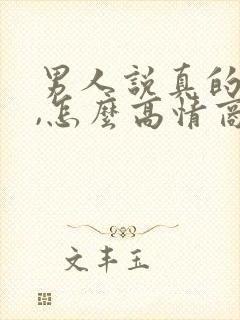 男人說真的
,怎麼高情商
文丰玉